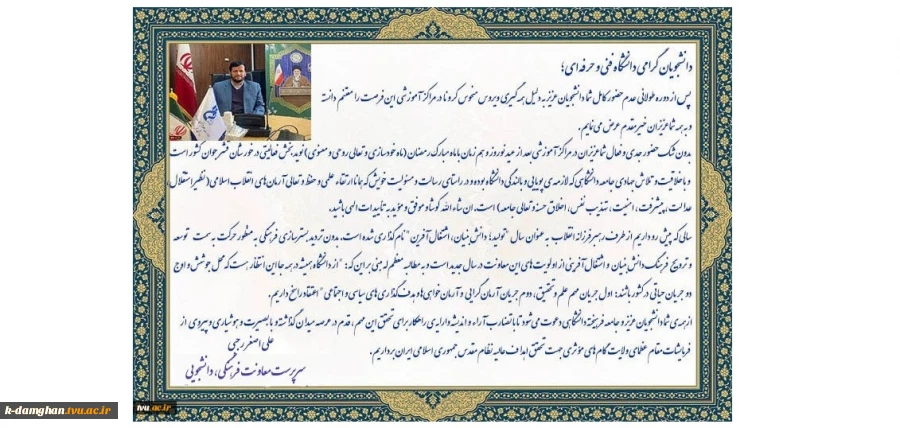 دانشجویان گرامی دانشگاه فنی و حرفه ای؛
پس از دوره طولانی عدم حضور کامل شما دانشجویان عزیز به دلیل همه گیری ویروس منحوس کرونا در مراکز آموزشی این فرصت را مغتنم دانسته
و به همه شما عزیزان خیر مقدم عرض می نمایم.
بدون شک حضور جدی و فعال شما عزیزان در مراکز آموزشی بعد از عید نوروز و هم زمان با ماه مبارک رمضان (ماه خودسازی و تعالی روحی و معنوی) نوید بخش فعالیتی درخور شان قشر جوان کشور است
و با خلاقیت و تلاش جهادی جامعه دانشگاهی که لازمه ی پویایی و بالندگی دانشگاه بوده و در راستای رسالت و مسئولیت خویش که همانا ارتقاء علمی و حفظ و تعالی آرمان های انقلاب اسلامی (نظیر استقلال،
عدالت، پیشرفت، امنیت، تهذیب نفس، اخلاق حسنه و تعالی جامعه) است، ان شاء الله کوشا و موفق و موید به تاییدات الهی باشید.
سالی که پیش رو داریم از طرف رهبر فرزانه انقلاب به عنوان سال "تولید؛ دانش بنیان، اشتغال آفرین" نام گذاری شده است، بدون تردید بسترسازی فرهنگی به منظور حرکت به سمت توسعه
و ترویج فرهنگ دانش بنیان و اشتغال آفرینی از اولویت های این معاونت در سال جدید است و به مطالبه معظم له مبنی بر این که: "از دانشگاه همیشه در همه جا این انتظار هست که محل جوشش و اوج
دو جریان حیاتی در کشور باشند: اول جریان مهم علم و تحقیق، دوم جریان آرمان گرایی و آرمان خواهی ها و هدف گذاری های سیاسی و اجتماعی" اعتقاد راسخ داریم.
از همه ی شما دانشجویان عزیز و جامعه فرهیخته دانشگاهی دعوت می شود تا با تضارب آراء و اندیشه و ارایه ی راهکار برای تحقق این مهم، قدم در عرصه میدان گذاشته و با بصیرت و هوشیاری و پیروی از
فرمایشات مقام عظمای ولایت گام های موثری جهت تحقق اهداف عالیه نظام مقدس جمهوری اسلامی ایران برداریم.
علی اصغر رجبی
سرپرست معاونت فرهنگی، دانشجویی
tvu.ac.ir
k-damghan.tvu.ac.ir